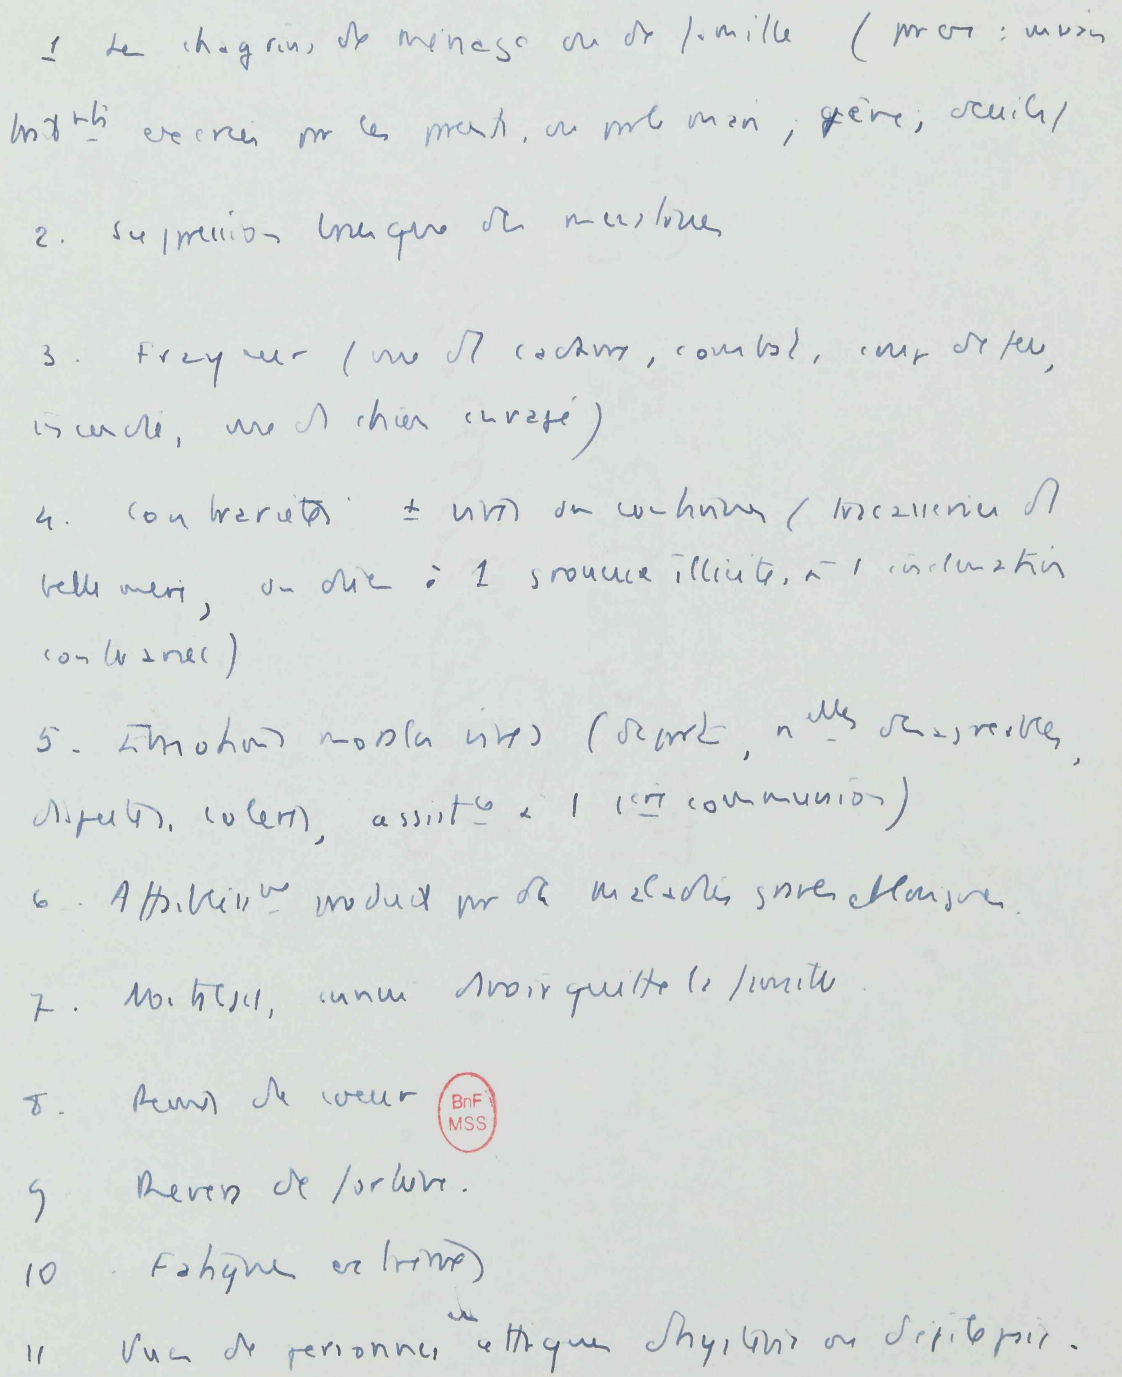 1 Les chagrins de ménage ou de famille (par ex : mauvais
trait^nts exercés par les parents, ou par le mari ; gêne ; deuils)
2. Suppression brusque des menstrues
3. Frayeur (vue d'1 cadavre, combat, coup de feu,
incendie, vue d'1 chien enragé)
4. Contrariétés ± vives ou continues (tracasseries d'1
belle mère, ou dûes à 1 grossesse illicite, à 1 inclination
contrariée)
5. Émotions morales vives (départ, n^elles désagréables,
disputes, colères, assist^ce à 1 1ère communion)
6. Affaibliss^nt produit par des maladies graves et longues.
7. Nostalgie, ennui d'avoir quitté la famille.
8. Peines de coeur
BnF
MSS
9 Revers de fortune.
10 Fatigues extrêmes
11 Vues de personnes en attaques d'hystérie ou d'épilepsie.